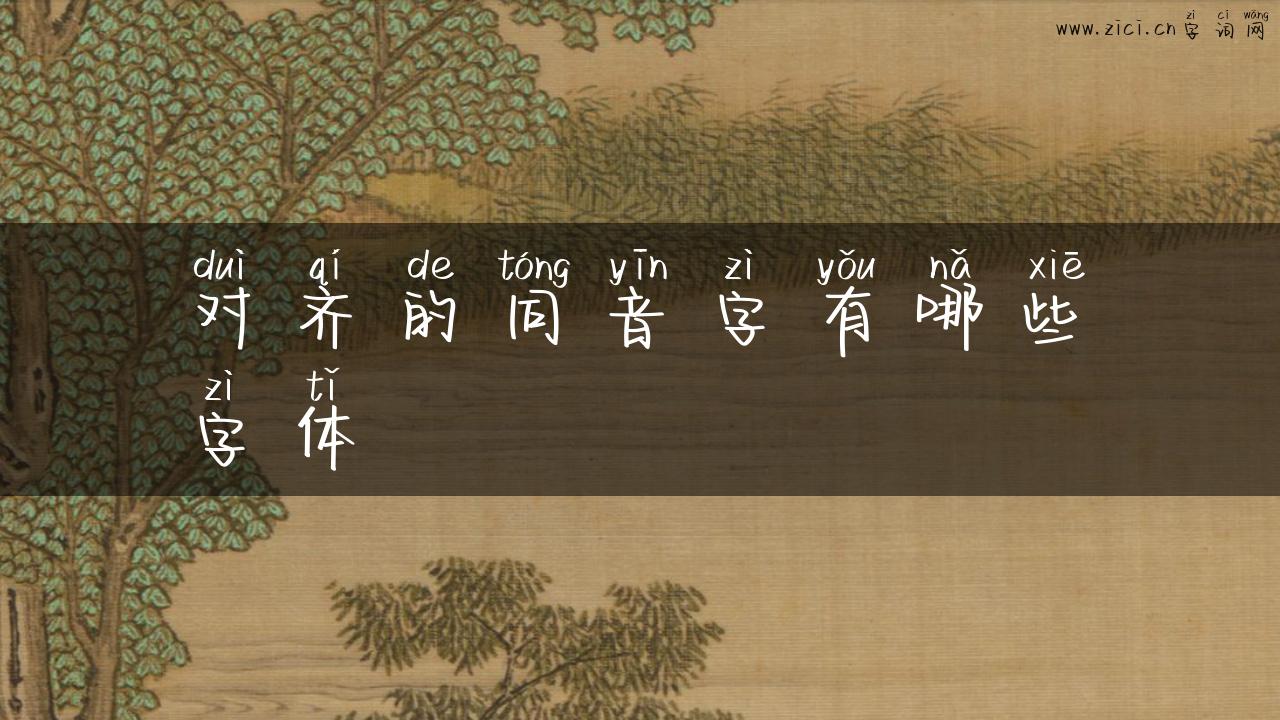 zì cí wǎng
www.zici.cn 字词网
duì qí de tóng yīn zì yǒu nǎ xiē
对齐的同音字有哪些
zì tǐ
字体